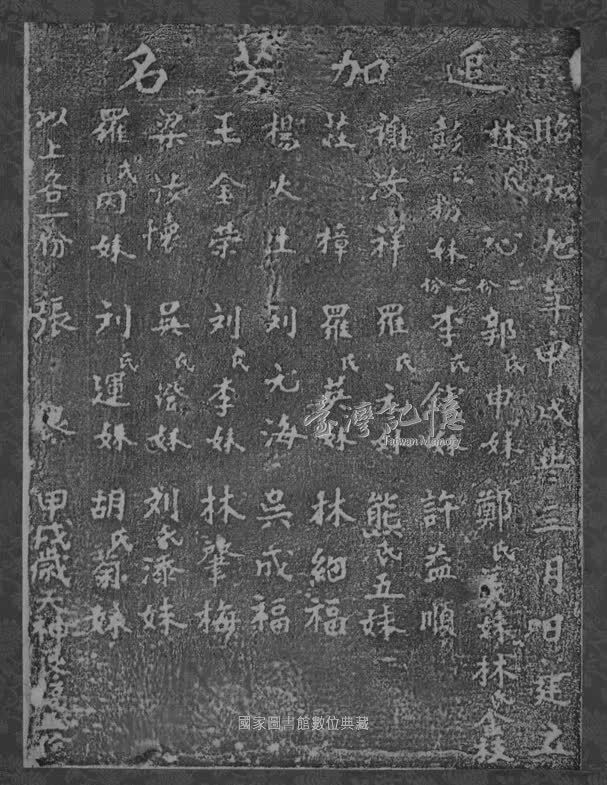 追加芳名
昭和九年甲戌 三月 日建立
林氏沁二份 郭氏申妹 鄭氏義妹 林氏
彭氏 妹二份 李氏 妹 許益順
謝汝祥 羅氏 妹 熊氏五妹
莊樟 羅氏英妹 林細福
楊火生 刘元海 吳成福
王金榮 刘氏李妹 林肇梅
梁法懷 吳氏 妹 刘氏添妹
羅氏內妹 刘氏運妹 胡氏菊妹
以上各一份 張 甲戌歲天神
臺灣記憶
Taiwan Memory
國家圖書館數位典藏